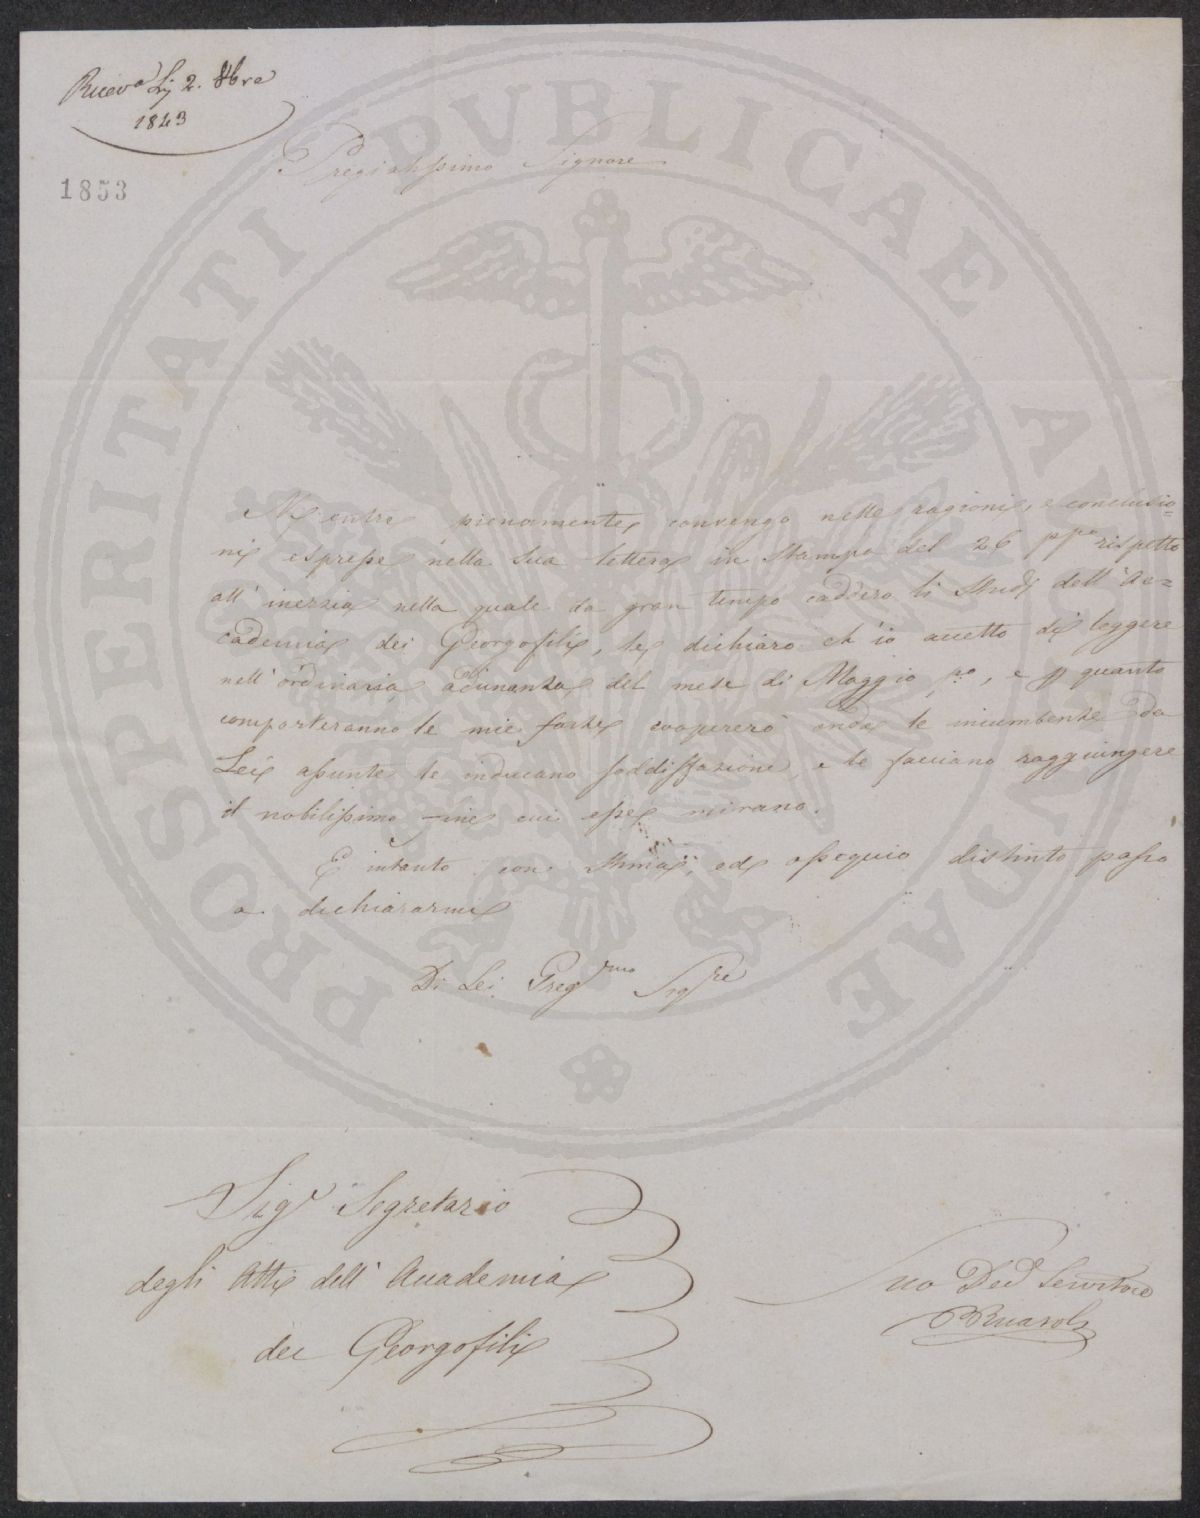 Ricev.a Li 2. 8bre
1843
1853
Pregiatissimo Signore
Mentre pienamente convengo nelle ragioni, e conclusio=
ni espresse nella sua lettera in stampa del 26 pp.o rispetto
all'inerzia nella quale da gran tempo caddero li Studj dell'Ac=
cademia dei Georgofili, le dichiaro ch'io accetto di leggere
nell'ordinaria adunanza del mese di Maggio p.o, e p quanto
comporteranno le mie forze coopererò onde le incumbenze da
Lei assunte le inducano soddisfazione, e le facciano raggiungere
il nobilissimo fine cui esse mirano.
E intanto con stima, ed ossequio distinto passo
a dichiararmi
Di Lei Preg.mo Sig.re
Sig.r Segretario
degli Atti dell'Accademia
dei Georgofili
Suo Dev. Servitore
PROSPERITATI PVBLICAE AVGENDAE